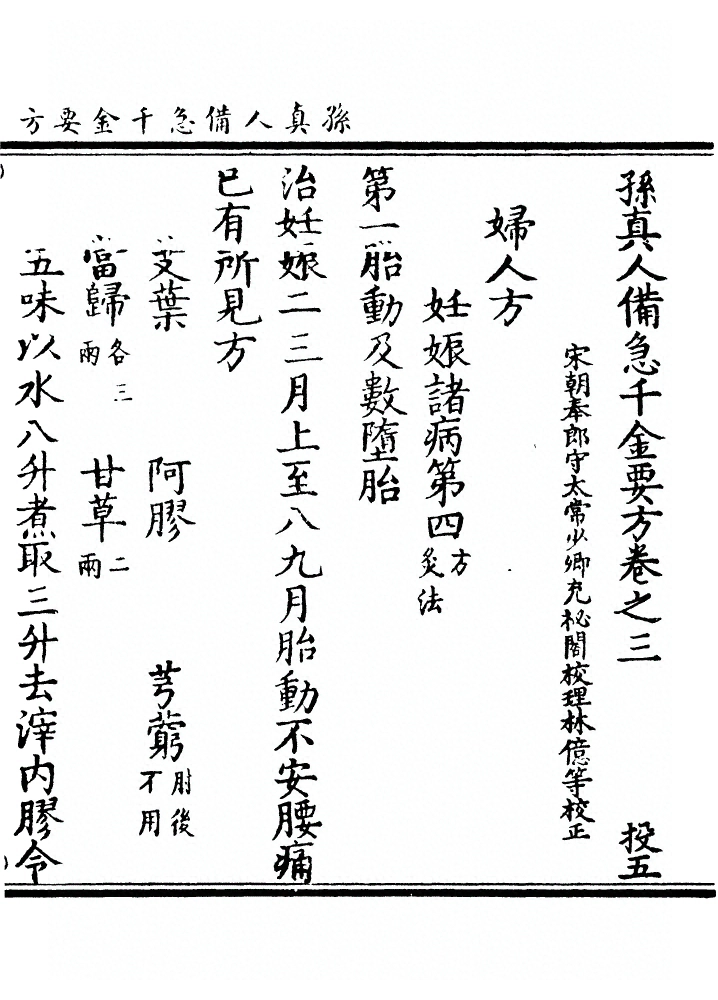 孫真人備急千金要方
孫真人備急千金要方卷之三 投五
宋朝奉郎守太常少卿充祕閣校理林億等校正
婦人方
妊娠諸病第四 方灸法
第一胎動及數墮胎
治妊娠二三月上至八九月胎動不安腰痛
已有所見方
艾葉 阿膠 芎藭 肘後不用
當歸 各三兩 甘草 二兩
五味以水八升煮取三升去滓內膠令